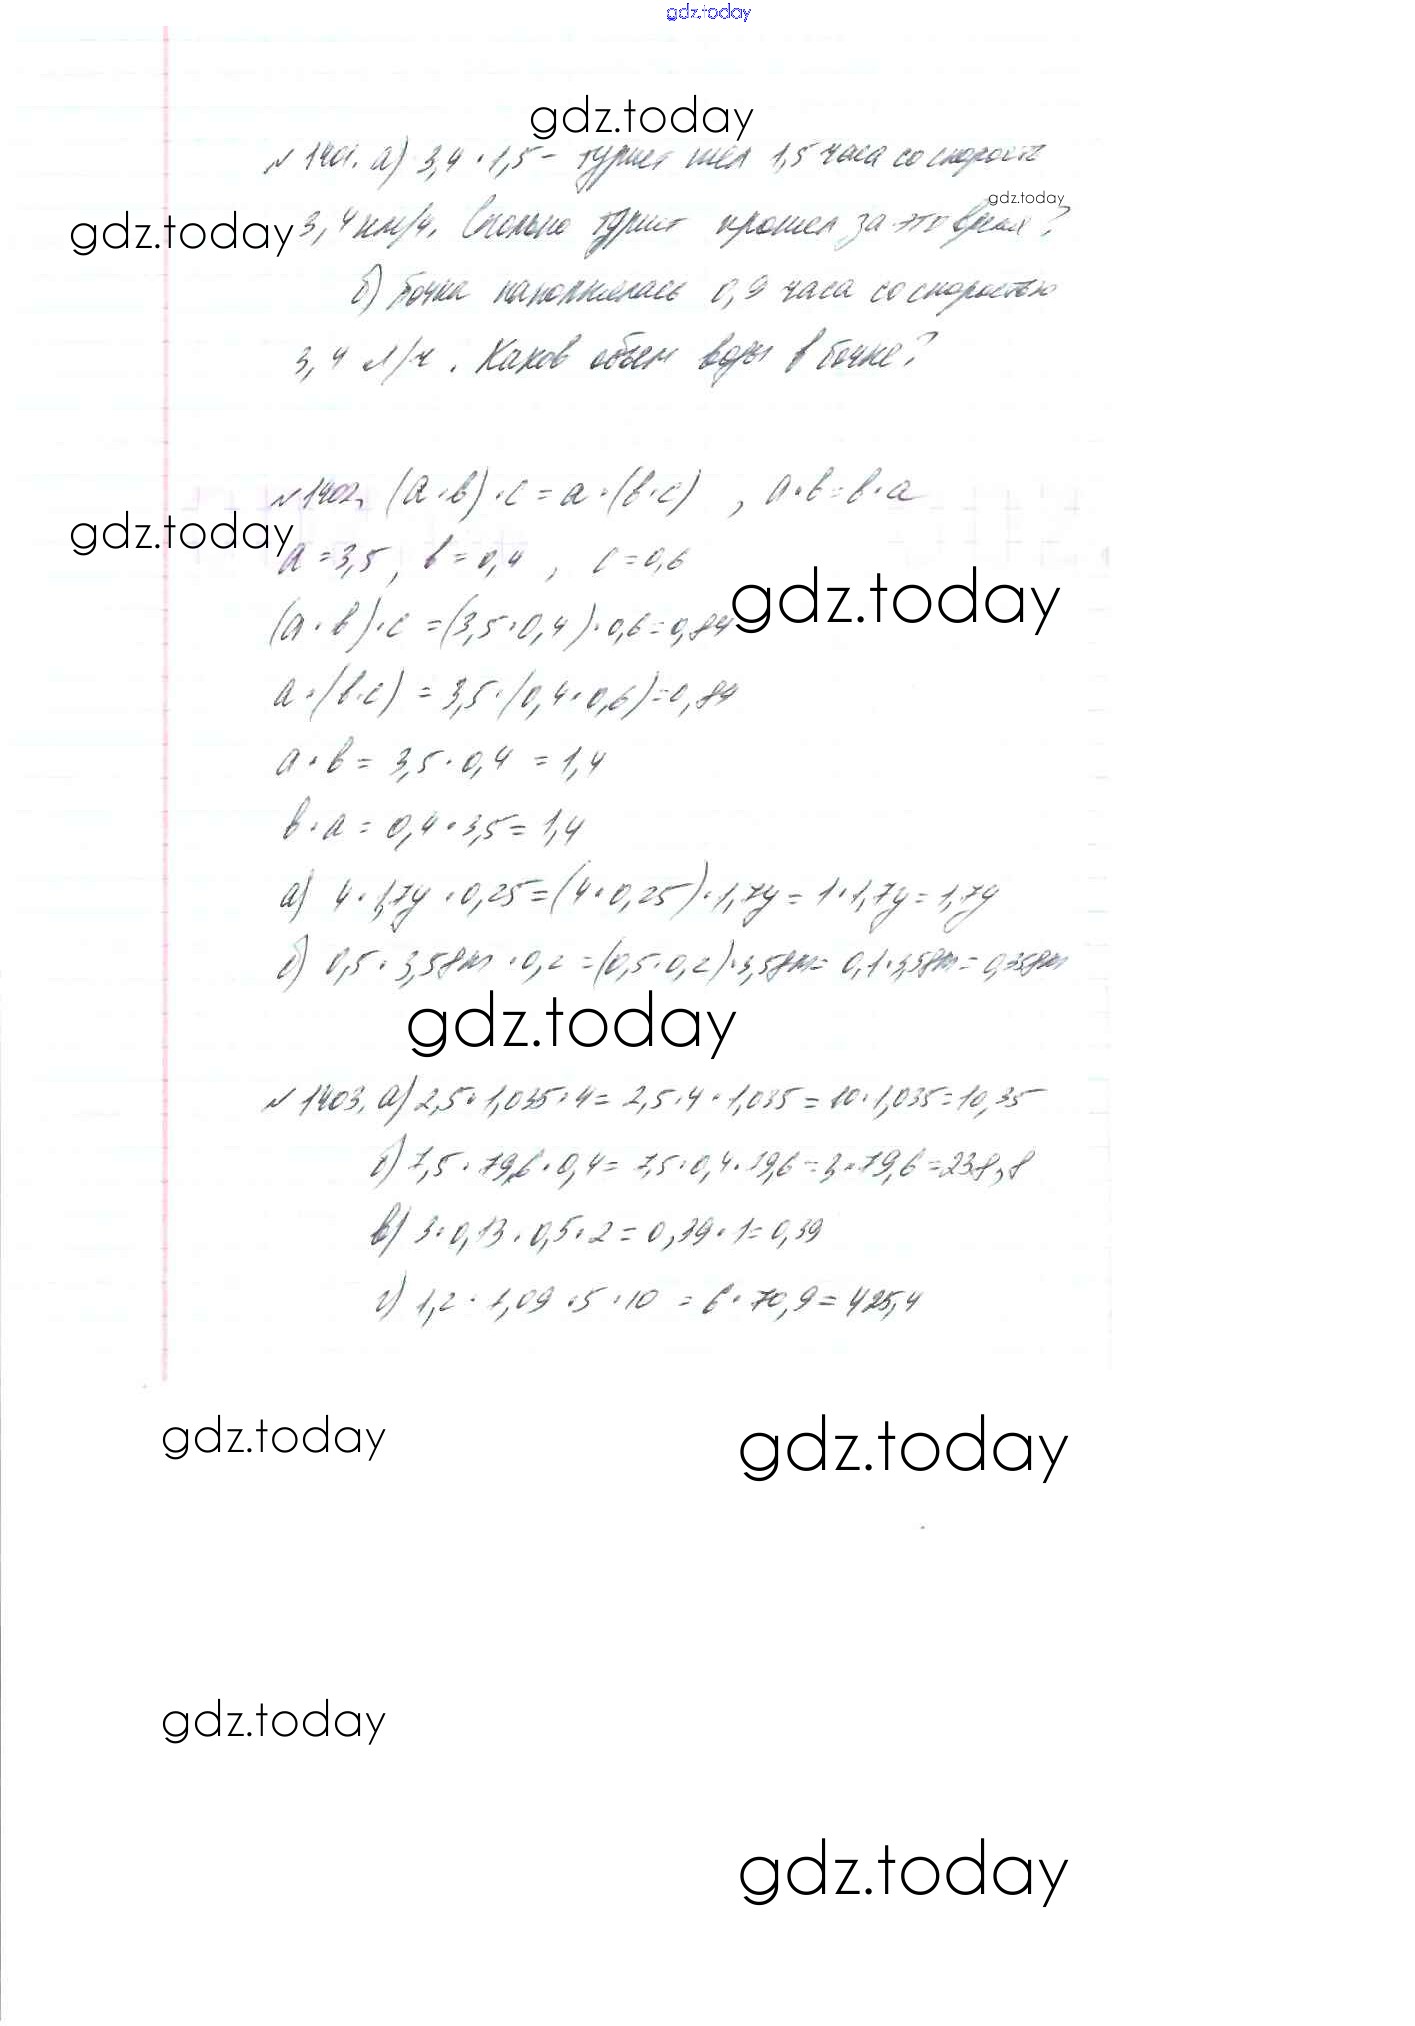 gdz.today
gdz.today
№ 1401. а) 3,4 · 1,5 - турист шел 1,5 часа со скорость
gdz.today
gdz.today 3,4 км/ч. Сколько турист прошел за это время?
б) Бочка наполнялась 0,9 часа со скоростью
3,4 л/ч. Каков объем воды в бочке?
№ 1402. (a · b) · c = a · (b · c) , a · b = b · a
gdz.today
a = 3,5 , b = 0,4 , c = 0,6
gdz.today
(a · b) · c = (3,5 · 0,4) · 0,6 = 0,84
a · (b · c) = 3,5 · (0,4 · 0,6) = 0,84
a · b = 3,5 · 0,4 = 1,4
b · a = 0,4 · 3,5 = 1,4
а) 4 · 1,7y · 0,25 = (4 · 0,25) · 1,7y = 1 · 1,7y = 1,7y
б) 0,5 · 3,58m · 0,2 = (0,5 · 0,2) · 3,58m = 0,1 · 3,58m = 0,358m
gdz.today
№ 1403. а) 2,5 · 1,035 · 4 = 2,5 · 4 · 1,035 = 10 · 1,035 = 10,35
б) 7,5 · 79,6 · 0,4 = 7,5 · 0,4 · 79,6 = 3 · 79,6 = 238,8
в) 3 · 0,13 · 0,5 · 2 = 0,39 · 1 = 0,39
г) 1,2 · 1,09 · 5 · 10 = 6 · 70,9 = 425,4
gdz.today
gdz.today
gdz.today
gdz.today